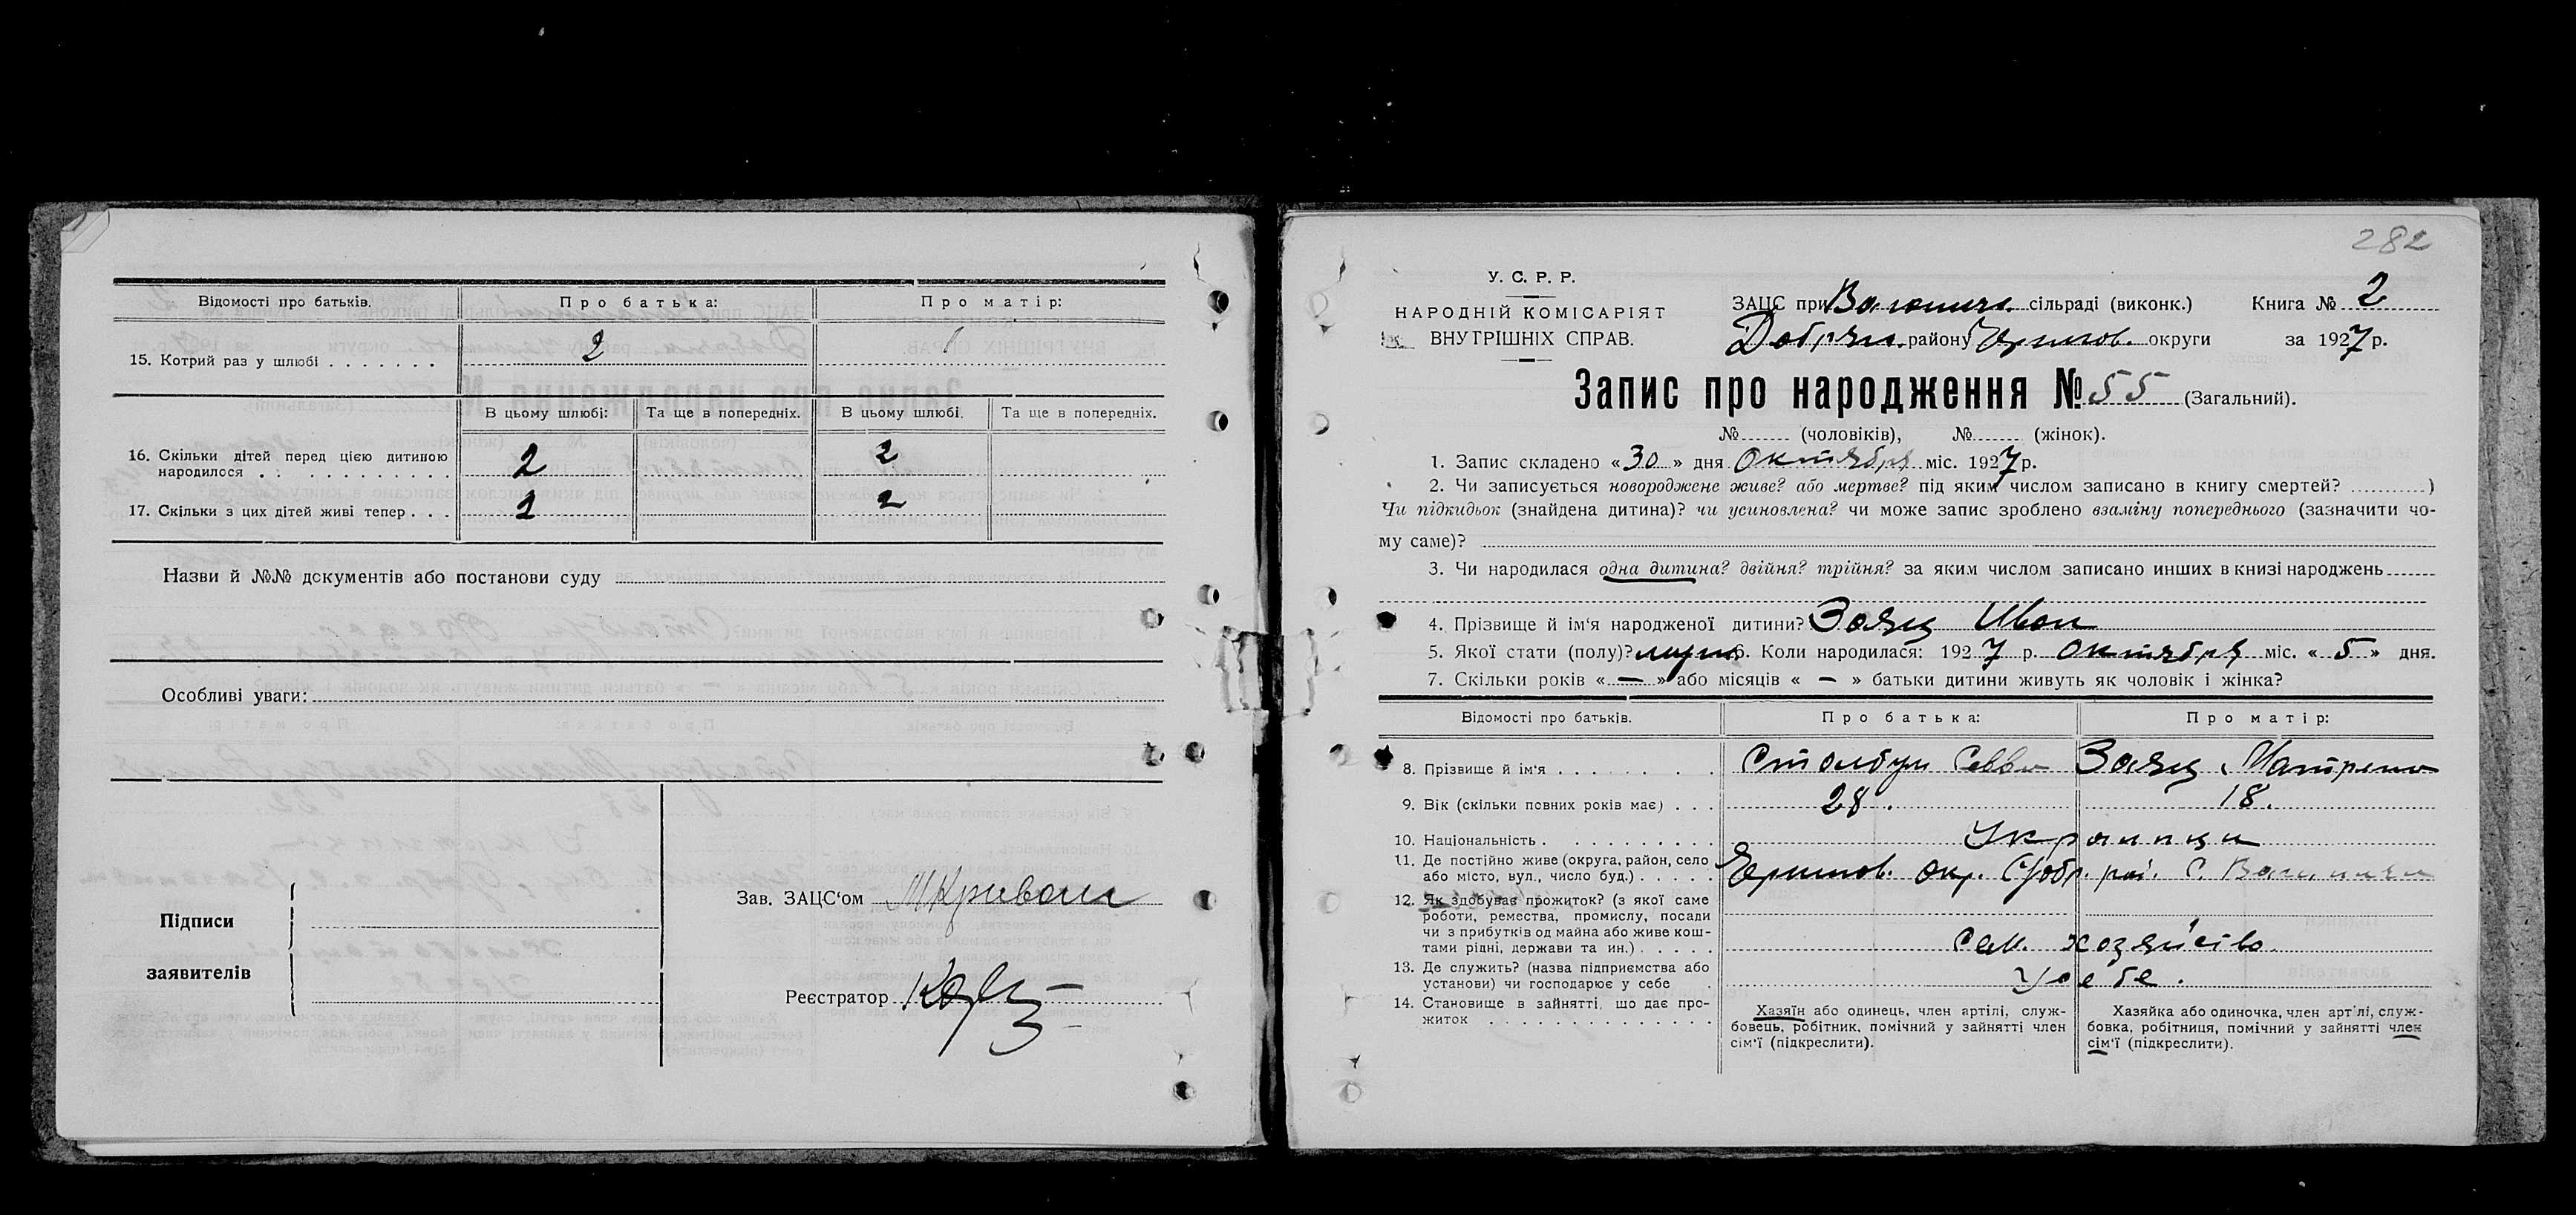 Відомості про батьків. Про батька: Про матір:
15. Котрий раз у шлюбі . . . . . . . 2 1
В цьому шлюбі: Та ще в попередніх. В цьому шлюбі. Та ще в попередніх.
16. Скільки дітей перед цією дитиною 2 2
народилося . . . . . . . . . . .
17. Скільки з цих дітей живі тепер . . . 2 2
Назви й №№ документів або постанови суду
Особливі уваги:
Підписи
заявителів
Зав. ЗАЦС‘ом
Реєстратор
282
У. С. Р. Р.
НАРОДНІЙ КОМІСАРІЯТ
ВНУТРІШНІХ СПРАВ.
ЗАЦС при сільраді (виконк.) Книга № 2
Добрян. району Черниговск. округи за 1927 р.
Запис про народження № 55 (Загальний).
№ (чоловіків), № (жінок).
1. Запис складено «30» дня Октября міс. 1927 р.
2. Чи записується новороджене живе? або мертве? під яким числом записано в книгу смертей? )
Чи підкидьок (знайдена дитина)? чи усиновлена? чи може запис зроблено взаміну попереднього (зазначити чо-
му саме)?
3. Чи народилася одна дитина? двійня? трійня? за яким числом записано инших в книзі народжень
4. Прізвище й ім‘я народженої дитини? Заяц Иван
5. Якої стати (полу)? мужс 6. Коли народилася: 1927 р. Октября міс. «5» дня.
7. Скільки років « — » або місяців « — » батьки дитини живуть як чоловік і жінка?
Відомості про батьків. Про батька: Про матір:
8. Прізвище й ім‘я . . . . . . . Столбун Савва Заяц Матрена
9. Вік (скільки повних років має) . . . 28. 18.
10. Національність . . . . . . . . . . Украинци
11. Де постійно живе (округа, район, село Чернигов. окр. Добр. рай. с.
або місто, вул., число буд.) . . . . .
12. Як здобуває прожиток? (з якої саме
роботи, ремества, промислу, посади
чи з прибутків од майна або живе кош-
тами рідні, держави та ин.) . . . . Сел. хозяйство
13. Де служить? (назва підприємства або У себе.
установи) чи господарює у себе
14. Становище в зайнятті, що дає про-
житок . . . . . . . . . . . . . .
Хазяїн або одинець, член артілі, служ-
бовець, робітник, помічний у зайнятті член
сім‘ї (підкреслити).
Хазяйка або одиночка, член арт‘лі, служ-
бовка, робітниця, помічний у зайнятті член
сім‘ї (підкреслити).